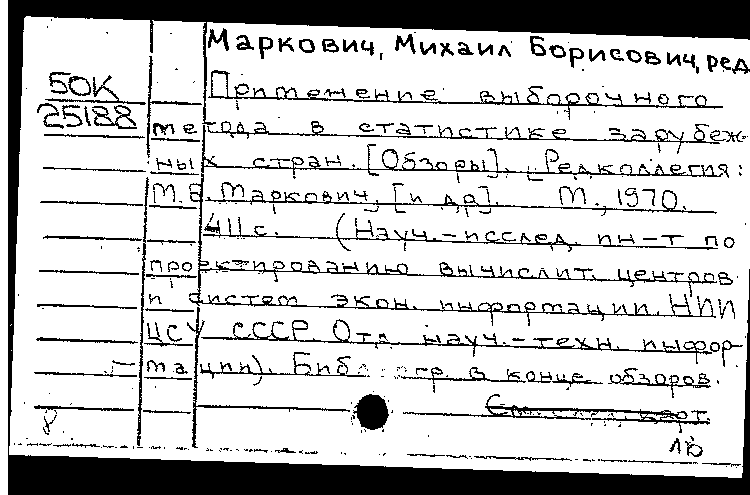 Маркович, Михаил Борисович, ред
БОК
25188
Применение выборочного
метода в статистике зарубеж-
ных стран. [Обзоры]. Редколлегия:
М.Б. Маркович, [и др]. М., 1970.
411 с. (Науч.-исслед. ин-т по
проектированию вычислит. центров
и систем экон. информации. НИИ
ЦСУ СССР. Отд. науч.-техн. информ-
мации). Библиогр. в конце обзоров.
См. след. карт.
8